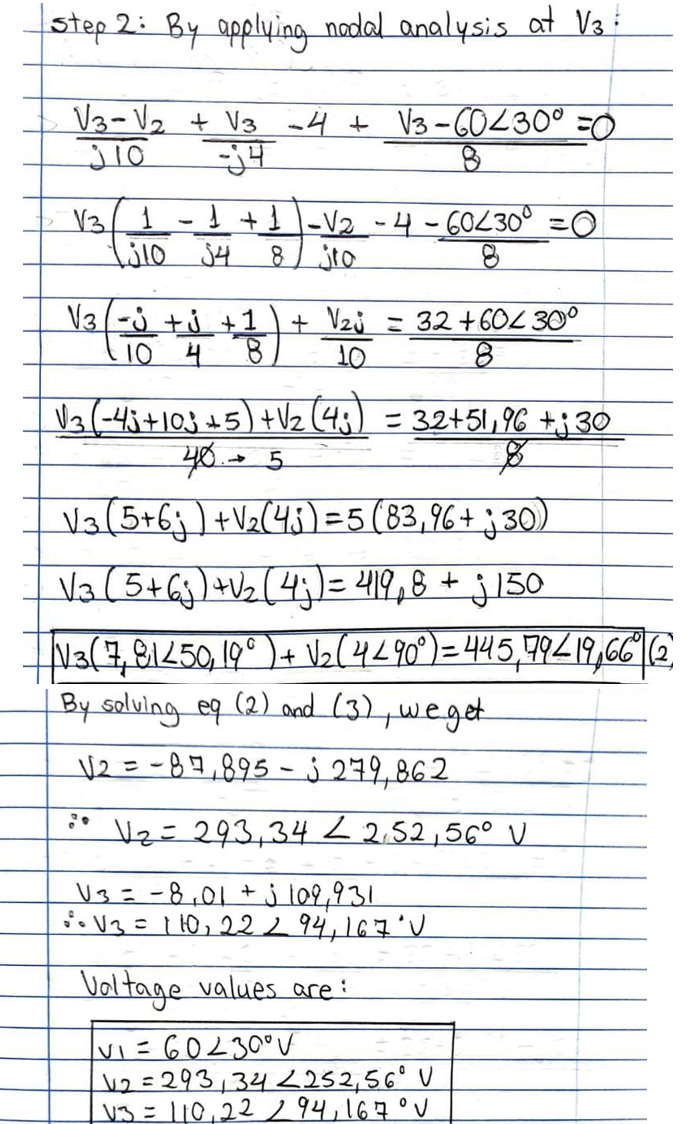 step 2: By applying nodal analysis at V3:
V3-V2/j10 + V3/-j4 -4 + V3-60∠30°/8 =0
V3(1/j10 - 1/j4 + 1/8) -V2/j10 -4 -60∠30°/8 =0
V3(-j/10 +j/4 +1/8) + V2j/10 = 32+60∠30°/8
V3(-4j+10j+5)+V2(4j)/40→5 = 32+51,96+j30/8
V3(5+6j)+V2(4j)=5(83,96+j30)
V3(5+6j)+V2(4j)=419,8 + j150
V3(7,81∠50,19°)+V2(4∠90°)=445,79∠19,66° (2)
By solving eq (2) and (3), we get
V2 = -87,895 - j279,862
∴ V2 = 293,34 ∠ 252,56° V
V3 = -8,01 + j109,931
∴ V3 = 110,22 ∠ 94,167°V
Voltage values are:
V1 = 60∠30°V
V2 = 293,34 ∠252,56° V
V3 = 110,22 ∠94,167°V